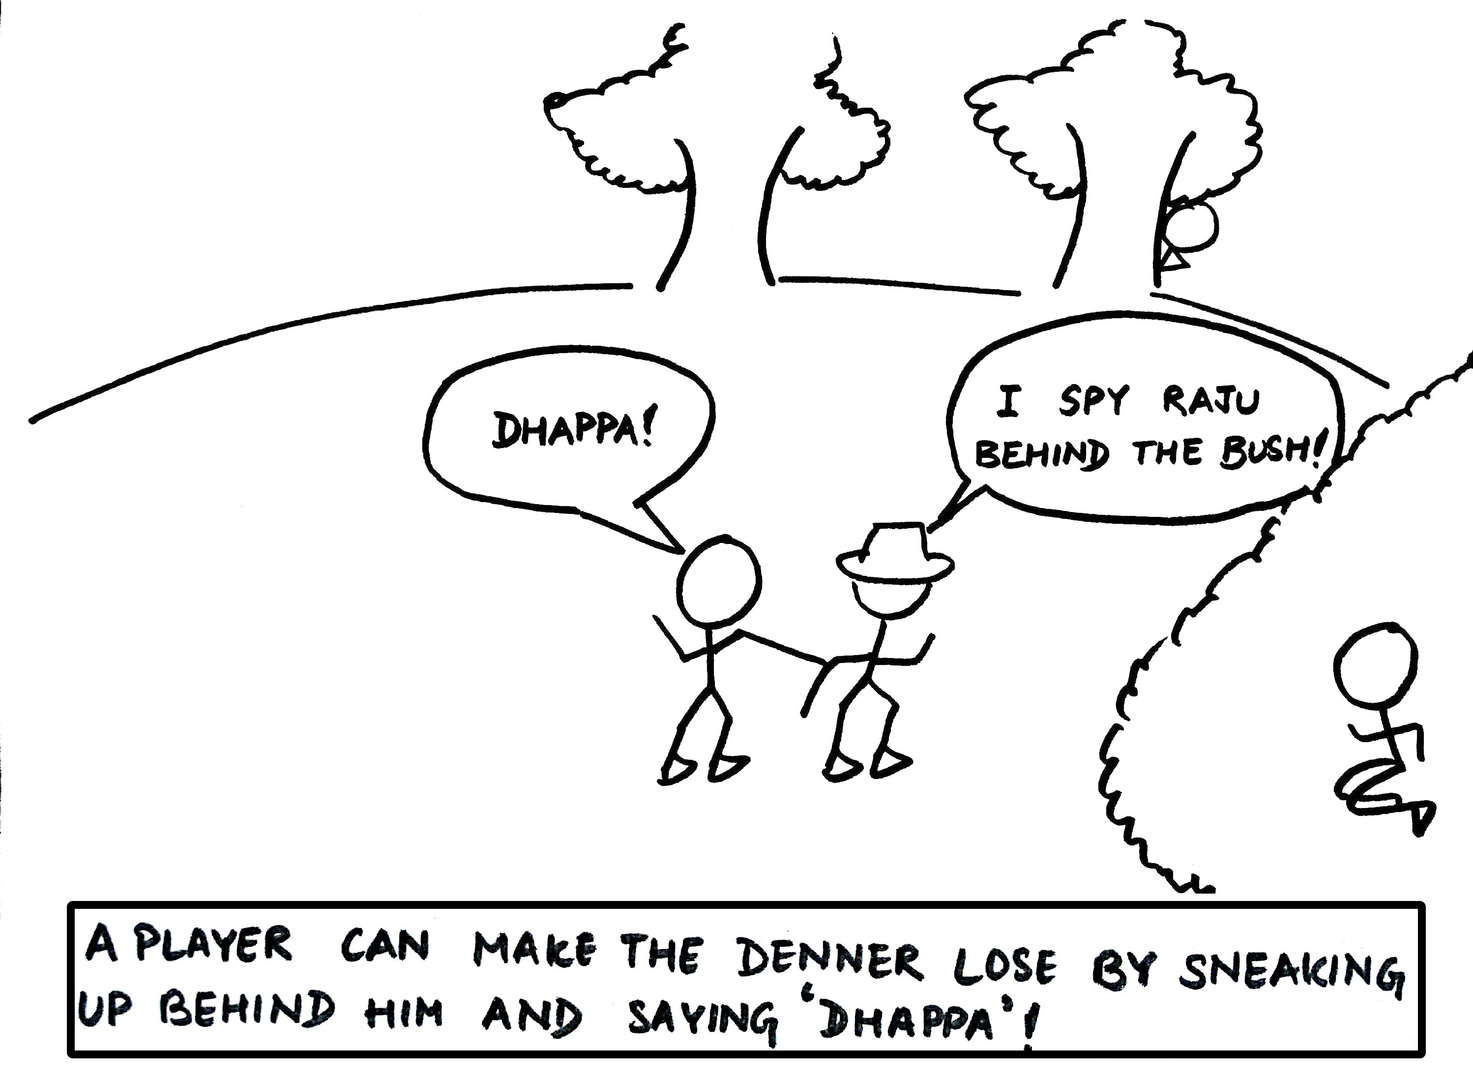 DHAPPA!
I SPY RAJU
BEHIND THE BUSH!
A PLAYER CAN MAKE THE DENNER LOSE BY SNEAKING
UP BEHIND HIM AND SAYING 'DHAPPA'!